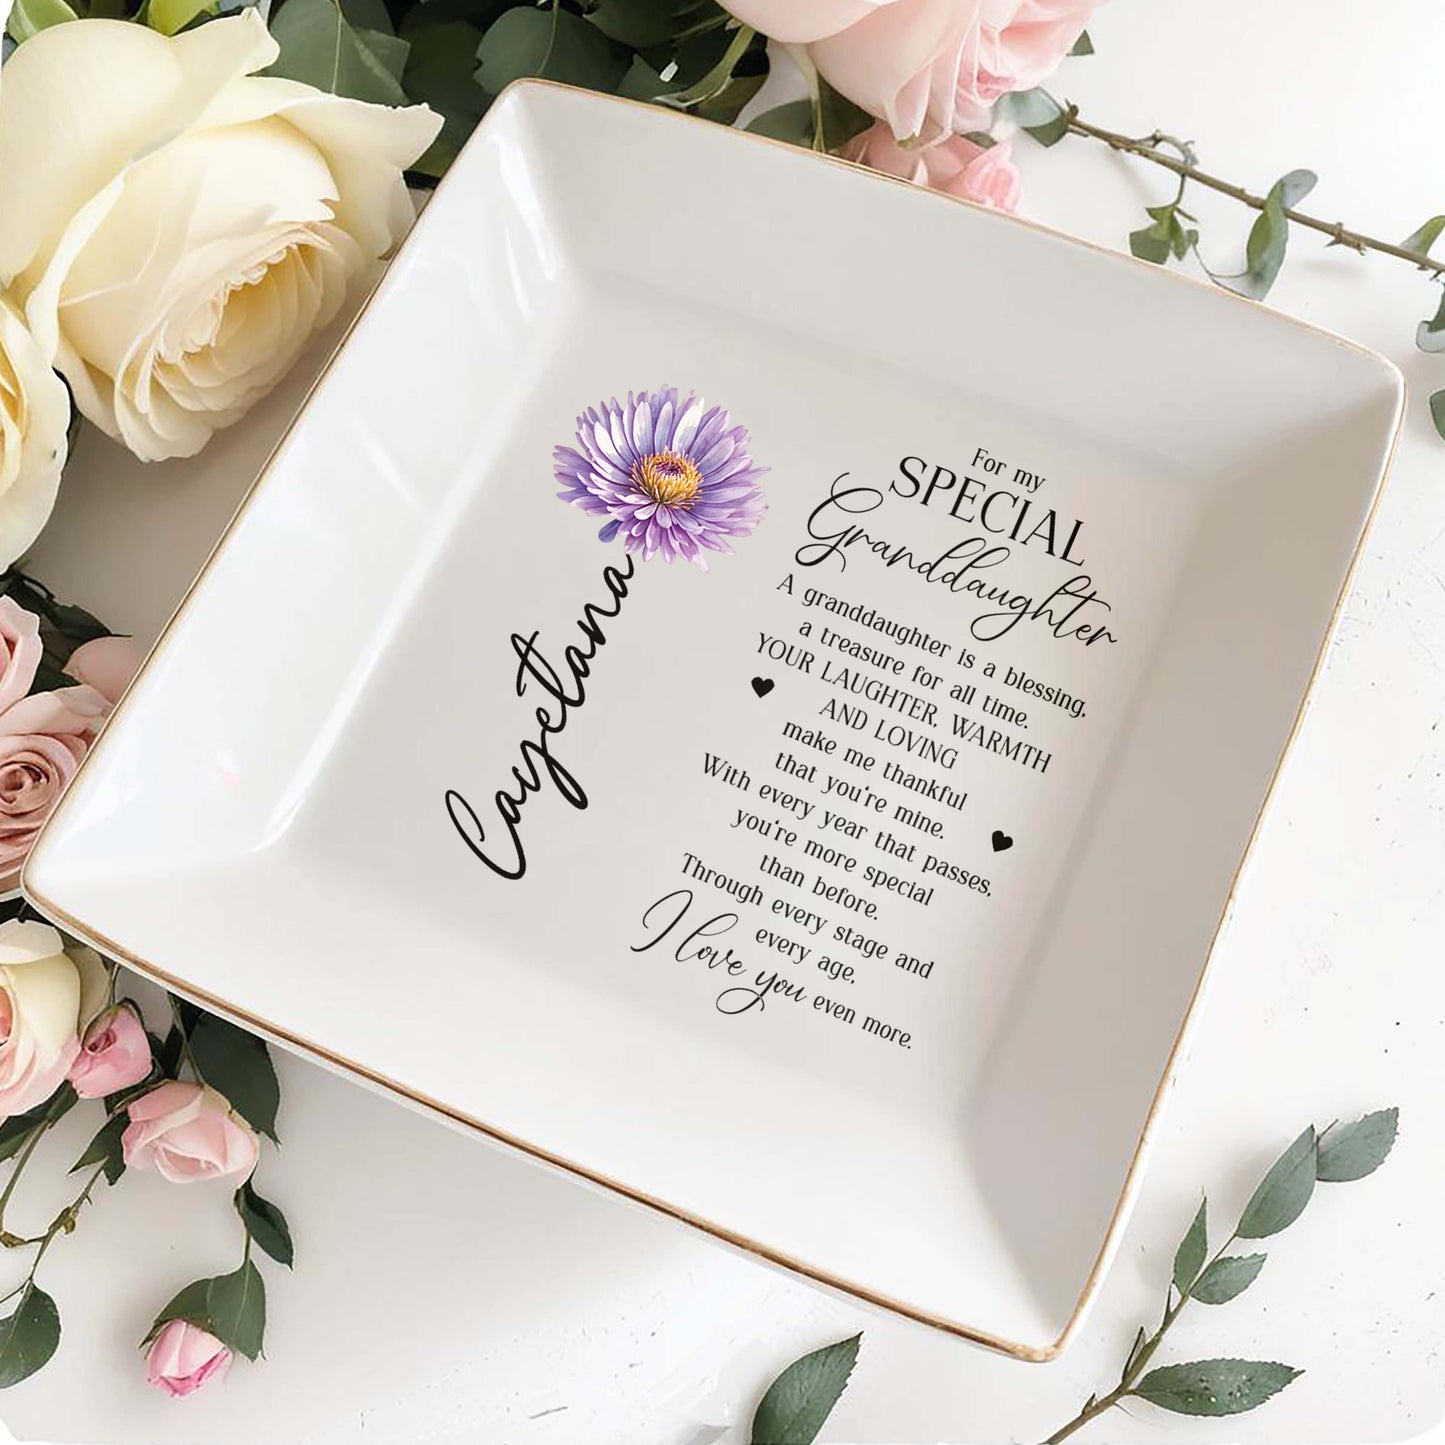 Cayetana
For my
SPECIAL
Granddaughter
A granddaughter is a blessing,
a treasure for all time.
YOUR LAUGHTER, WARMTH
AND LOVING
make me thankful
that you're mine.
With every year that passes,
you're more special
than before.
Through every stage and
every age,
I love you even more.